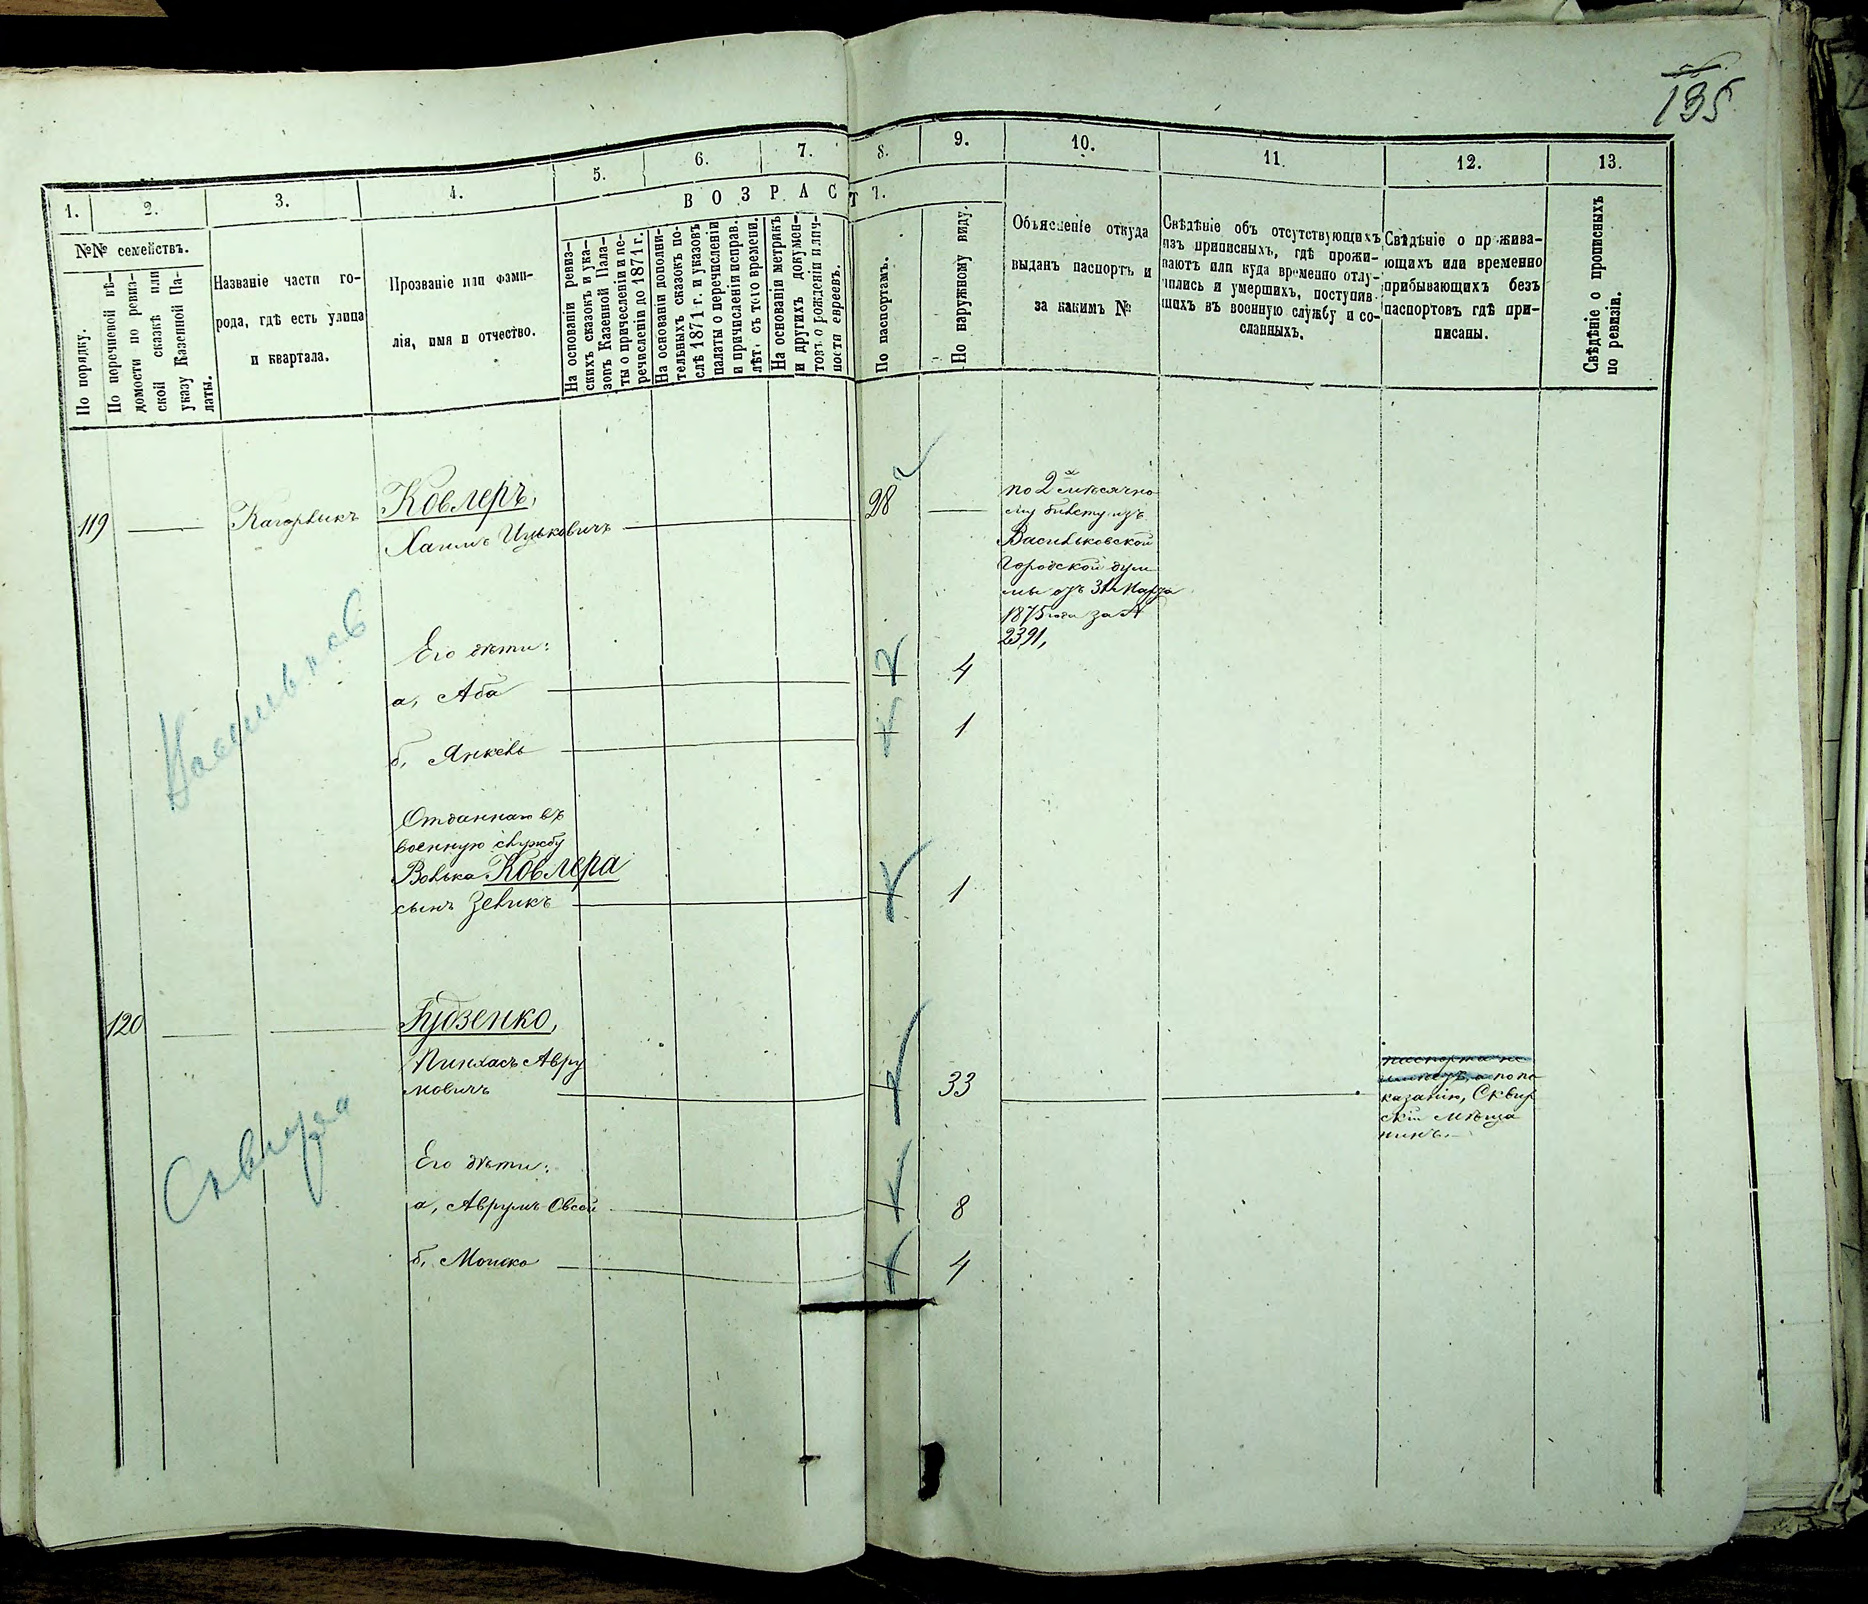 135
1.
2.
3.
4.
5.
6.
7.
8.
9.
10.
11.
12.
13.
ВОЗРАСТ
№№ семействъ.
По порядку.
По перечневой вѣ-
домости по ревиз-
ской сказкѣ или
указу Казенной Па-
латы.
Названіе части го-
рода, гдѣ есть улица
и квартала.
Прозваніе или фами-
лія, имя и отчество.
На основаніи ревиз-
скихъ сказокъ и ука-
зовъ Казенной Пала-
ты о причисленіи и пе-
речисленіи до 1871 г.
На основаніи дополни-
тельныхъ сказокъ по-
слѣ 1871 г. и указовъ
палаты о перечисленіи
и причисленіи исправ.
лѣт. съ того времени.
На основаніи метрикъ
и другихъ докумен-
товъ о рожденіи и лич-
ности евреевъ.
По паспортамъ.
По наружному виду.
Объясненіе откуда
выданъ паспортъ и
за какимъ №
Свѣдѣніе объ отсутствующихъ
изъ приписныхъ, гдѣ прожи-
ваютъ или куда временно отлу-
чились и умершихъ, поступив-
шихъ въ военную службу и со-
сланныхъ.
Свѣдѣніе о прожива-
ющихъ или временно
прибывающихъ безъ
паспортовъ гдѣ при-
писаны.
Свѣдѣніе о прописныхъ
по ревизіи.
119
Кагарлыкъ
Ковлеръ,
Хаимъ Ицьковичъ
28
по 2 мѣсячно
му билету изъ
Васильковской
Городской дум
мы отъ 31 Марта
1875 года за №
2391,
Его дѣти:
а, Аба
4
б, Янкель
1
Васильковъ
Отданнаго въ
военную службу
Волька Ковлера
сынъ Зельикъ
1
120
Гудзенко,
Пинхасъ Авру
мовичъ
33
паспорта не
имѣетъ, а по по
казанію, Сквир
скій мѣща
нинъ.
Сквира
Его дѣти:
а, Аврумъ Овсей
8
б, Мошко
4